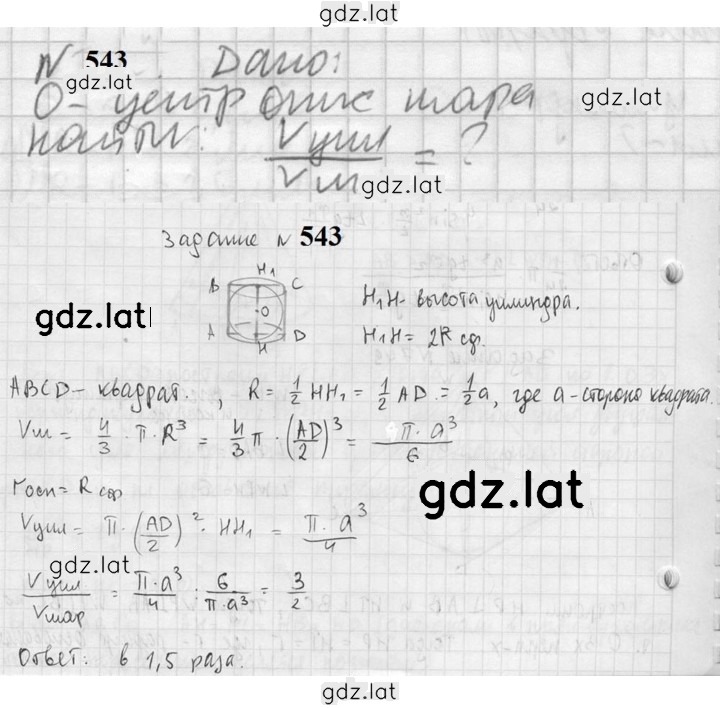 gdz.lat
N 543 Дано:
gdz.lat
О - центр опис шара gdz.lat
найти: Vцил/Vш = ?
gdz.lat
Задание N 543
H₁
B C
O
A D
H
H₁H - высота цилиндра.
gdz.lat
H₁H = 2R сф.
ABCD - квадрат. , R = 1/2 HH₁ = 1/2 AD = 1/2 a, где a - сторона квадрата.
Vш = 4/3 · π · R³ = 4/3 π · (AD/2)³ = π · a³/6
rосн = R сф
gdz.lat
Vцил = π · (AD/2)² · HH₁ = π · a³/4
gdz.lat
Vцил/Vшар = π · a³/4 : 6/π · a³ = 3/2
Ответ: в 1,5 раза.
gdz.lat